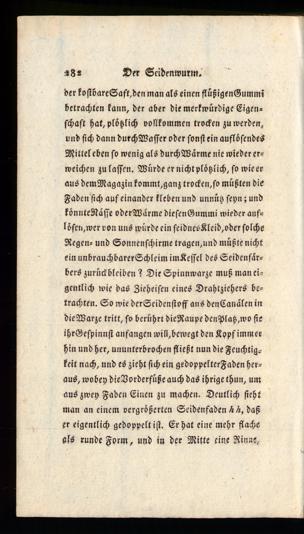 282 Der Seidenwurm.
der kostbare Saft, den man als einen flüßigen Gummi
betrachten kann, der aber die merkwürdige Eigen-
schaft hat, plötzlich vollkommen trocken zu werden,
und sich dann durch Wasser oder sonst ein auflösendes
Mittel eben so wenig als durch Wärme nie wieder er-
weichen zu lassen. Würde er nicht plötzlich, so wie er
aus dem Magazin kommt, ganz trocken, so müßten die
Faden sich auf einander kleben und unnütz seyn; und
könnte Nässe oder Wärme diesen Gummi wieder auf-
lösen, wer von uns würde ein seidnes Kleid, oder solche
Regen- und Sonnenschirme tragen, und müßte nicht
ein unbrauchbarer Schleim im Kessel des Seidenfär-
bers zurückbleiben? Die Spinnwarze muß man ei-
gentlich wie das Zieheisen eines Drahtziehers be-
trachten. So wie der Seidenstoff aus den Canälen in
die Warze tritt, so berührt die Raupe den Platz, wo sie
ihr Gespinnst anfangen will, bewegt den Kopf immer
hin und her, ununterbrochen fließt nun die Feuchtig-
keit nach, und es zieht sich ein gedoppelter Faden her-
aus, wobey die Vorderfüße auch das ihrige thun, um
aus zwey Faden Einen zu machen. Deutlich sieht
man an einem vergrößerten Seidenfaden 44, daß
er eigentlich gedoppelt ist. Er hat eine mehr flache
als runde Form, und in der Mitte eine Rinne,